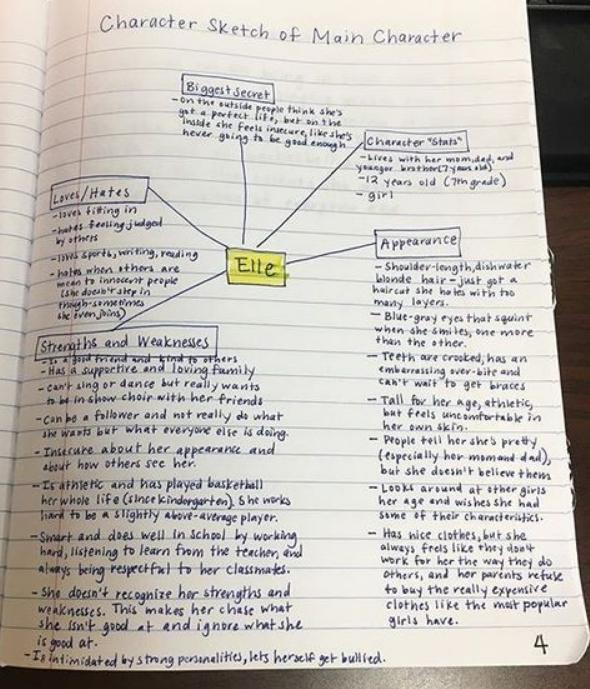 Character Sketch of Main Character
Biggest Secret
- On the outside people think she's
got a perfect life, but on the
inside she feels insecure, like she's
never going to be good enough
Character "Stats"
- Lives with her mom, dad, and
younger brother (7 years old)
- 12 years old (7th grade)
- girl
Loves/Hates
- loves fitting in
- hates feeling judged
by others
- loves sports, writing, reading
- hates when others are
mean to innocent people
(she doesn't step in
though-sometimes
she even joins)
Elle
Appearance
- Shoulder-length, dishwater
blonde hair - just got a
haircut she hates with too
many layers.
- Blue-gray eyes that squint
when she smiles, one more
than the other.
- Teeth are crooked, has an
embarrassing over-bite and
can't wait to get braces
- Tall for her age, athletic,
but feels uncomfortable in
her own skin.
- People tell her she's pretty
(especially her mom and dad),
but she doesn't believe them
- Looks around at other girls
her age and wishes she had
some of their characteristics.
- Has nice clothes, but she
always feels like they don't
work for her the way they do
others, and her parents refuse
to buy the really expensive
clothes like the most popular
girls have.
Strengths and Weaknesses
- Is a good friend and kind to others
- Has a supportive and loving family
- can't sing or dance but really wants
to be in show choir with her friends
- Can be a follower and not really do what
she wants but what everyone else is doing.
- Insecure about her appearance and
about how others see her.
- Is athletic and has played basketball
her whole life (since kindergarten). She works
hard to be a slightly above-average player.
- Smart and does well in school by working
hard, listening to learn from the teacher, and
always being respectful to her classmates.
- She doesn't recognize her strengths and
weaknesses. This makes her chase what
she isn't good at and ignore what she
is good at.
- Is intimidated by strong personalities, lets herself get bullied.
4